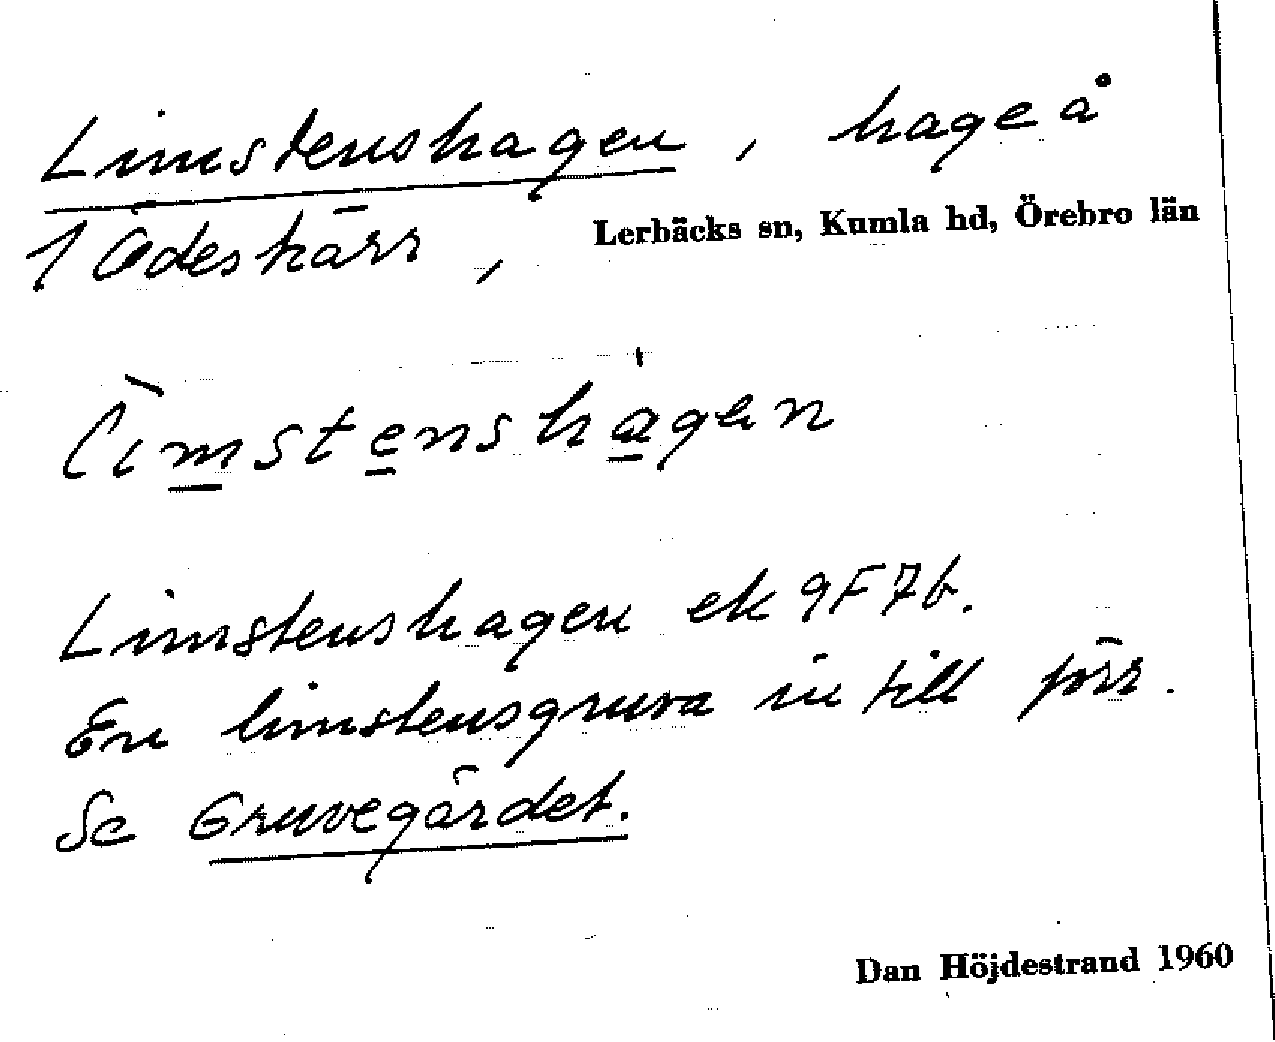 Limstenshagen, hage å
1 Ödeskärr,
Lerbäcks sn, Kumla hd, Örebro län
lìmstenshagen
Limstenshagen ek 9F7b.
En limstensgruva in till förr.
Se Gruvegärdet.
Dan Höjdestrand 1960